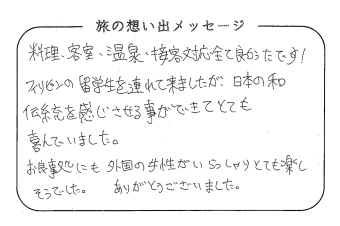 旅の想い出メッセージ
料理、客室、温泉、接客対応全て良かったです!
フィリピンの留学生を連れて来ましたが、日本の和
伝統を感じさせる事ができてとても
喜んでいました。
お食事処にも外国の女性がいらっしゃりとても楽し
そうでした。 ありがとうございました。